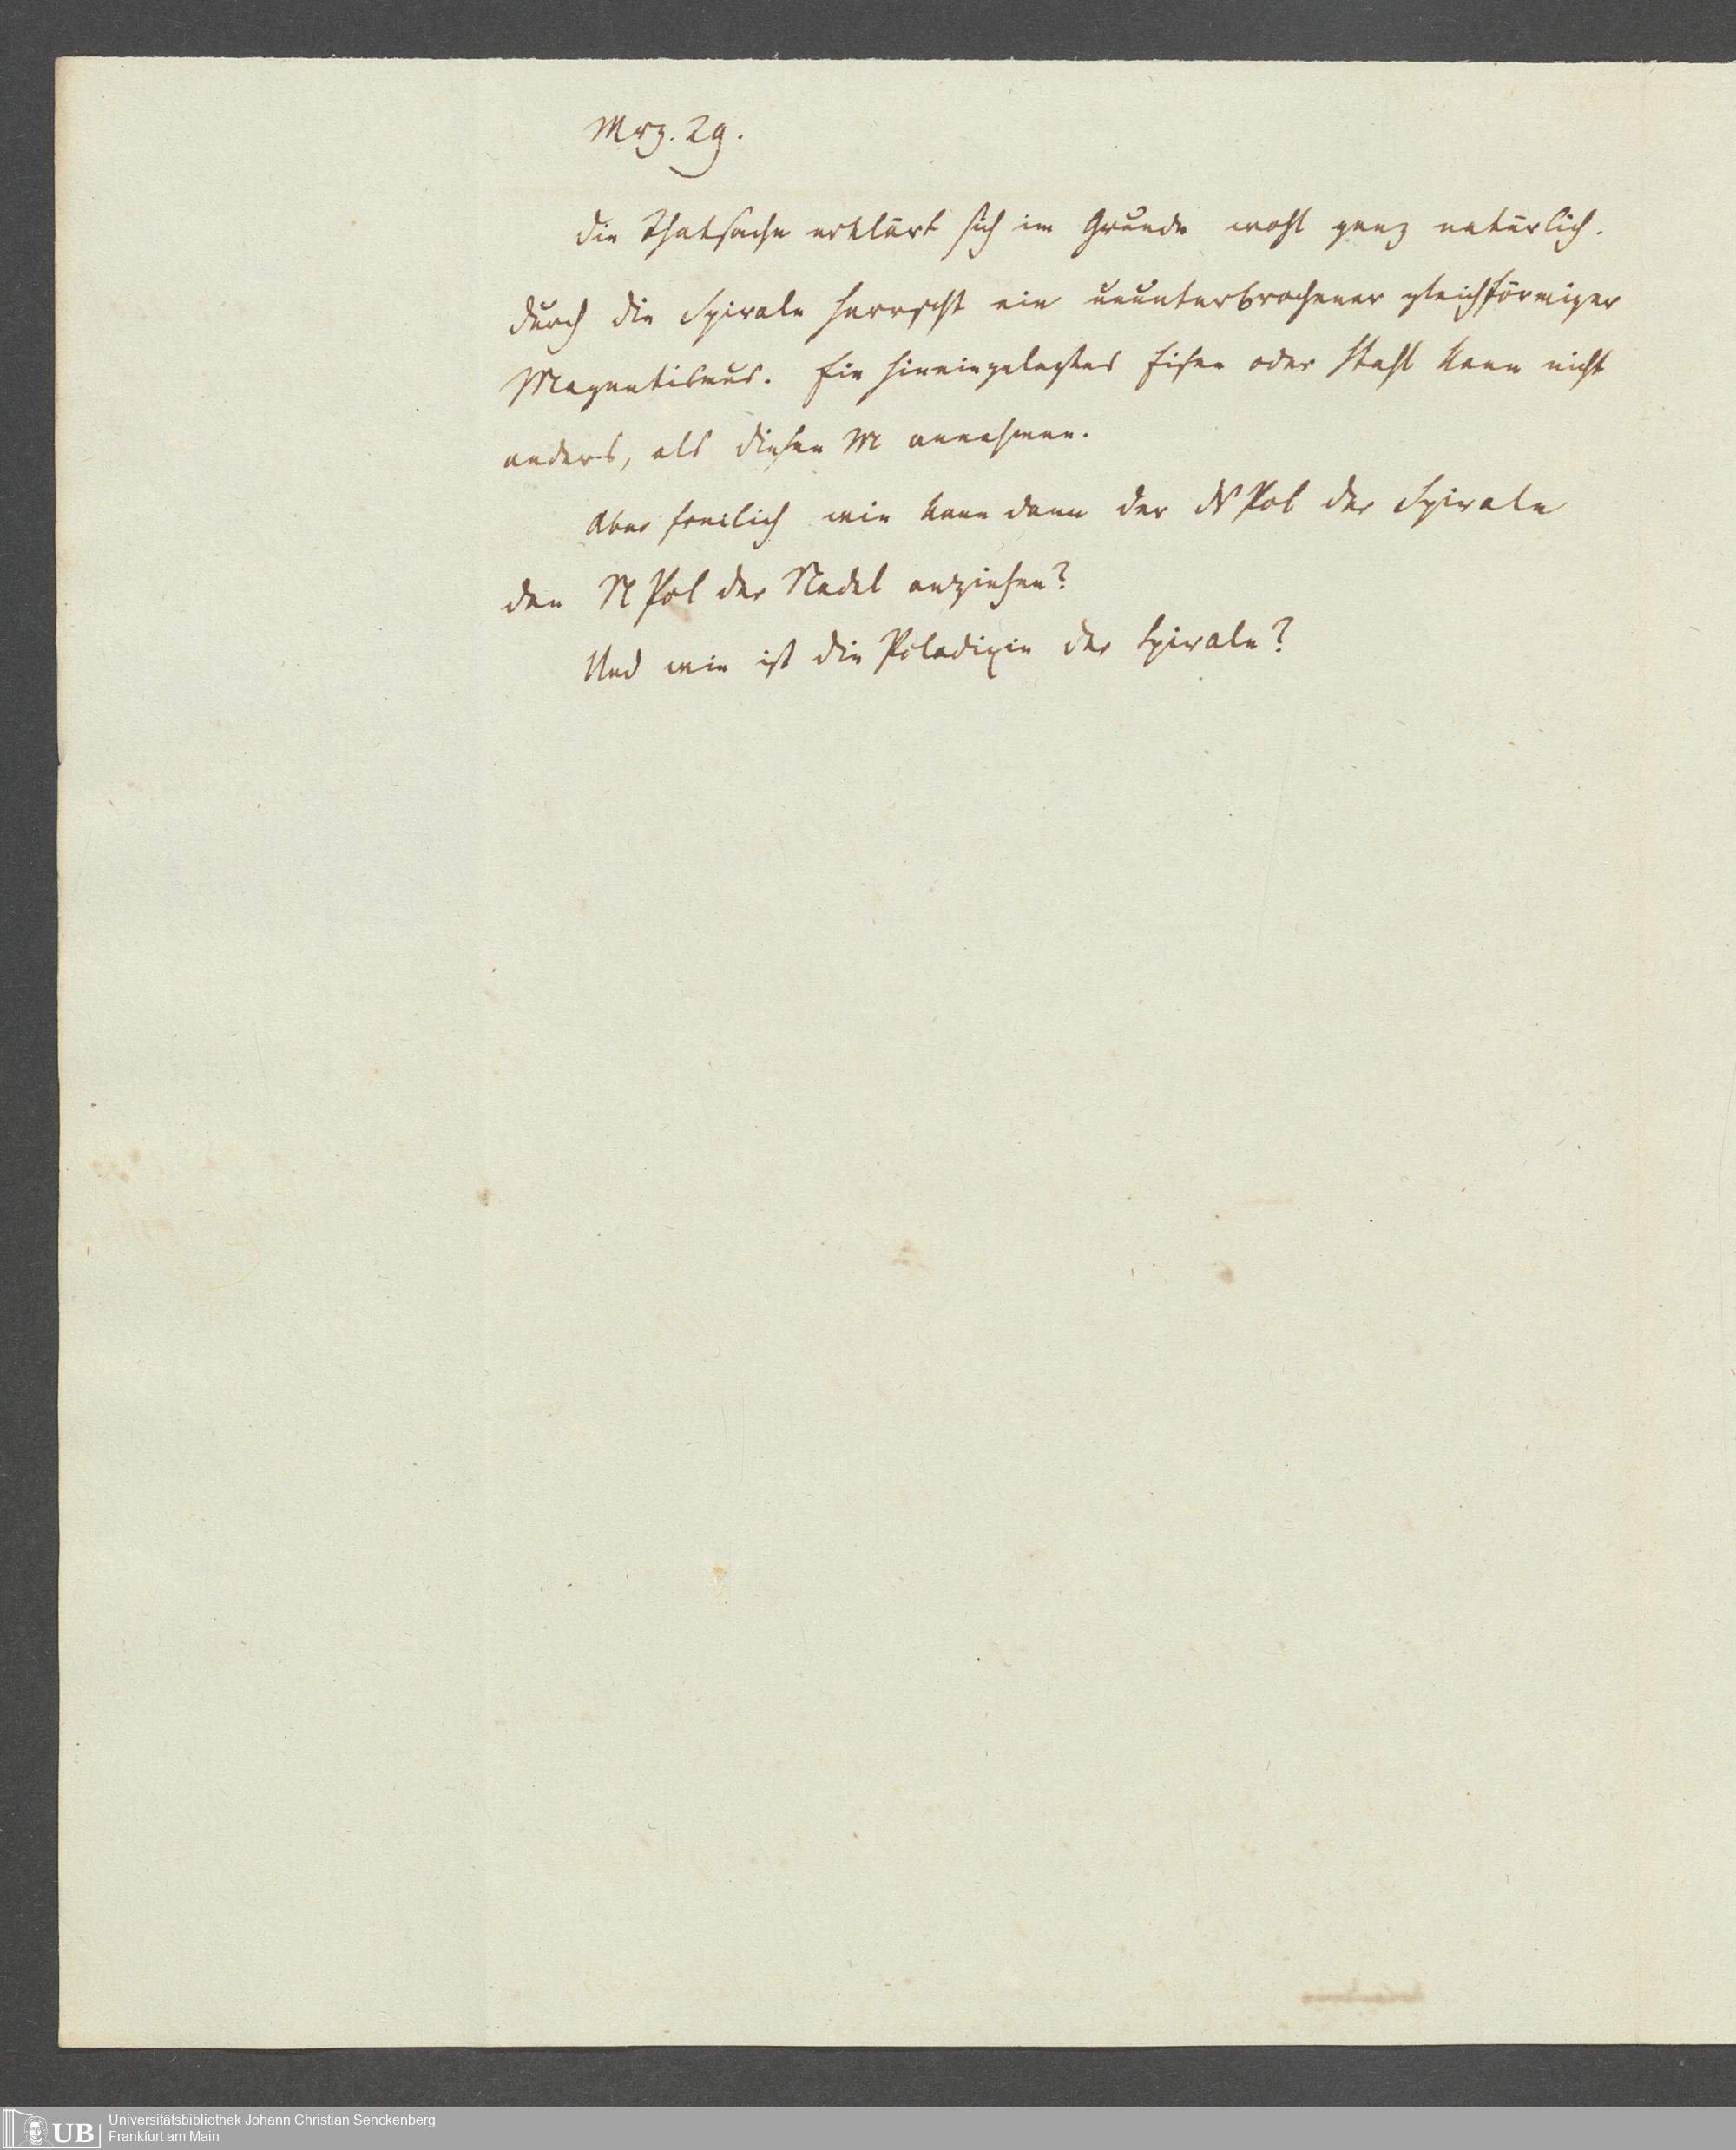 Mrz. 29.
Die Thatsache erklärt sich im Grunde wohl ganz natürlich.
Durch die Spirale herrscht ein ununterbrochener gleichförmiger
Magnetismus. Ein hineingelegtes Eisen oder Stahl kann nicht
anders, als diesen M annehmen.
Aber freilich wie kann dann der N Pol der Spirale
den N Pol der Nadel anziehen?
Und wie ist die der Spirale?
UB
Universitätsbibliothek Johann Christian Senckenberg
Frankfurt am Main